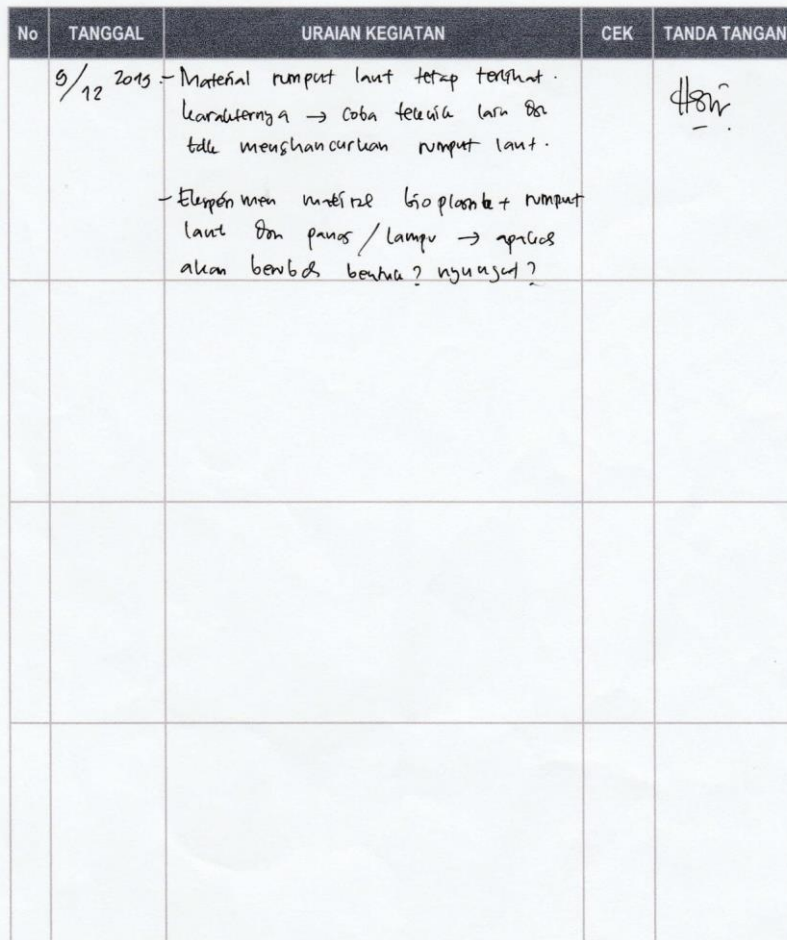 No TANGGAL URAIAN KEGIATAN CEK TANDA TANGAN
9/12 2019 - Material rumput laut tetap terlihat.
karakternya → coba teknik lain dn
tdk menghancurkan rumput laut.
- Eksperimen bioplastik + rumput
laut dn panas / lampu → apakah
akan berubah bentuk? nyungsut?